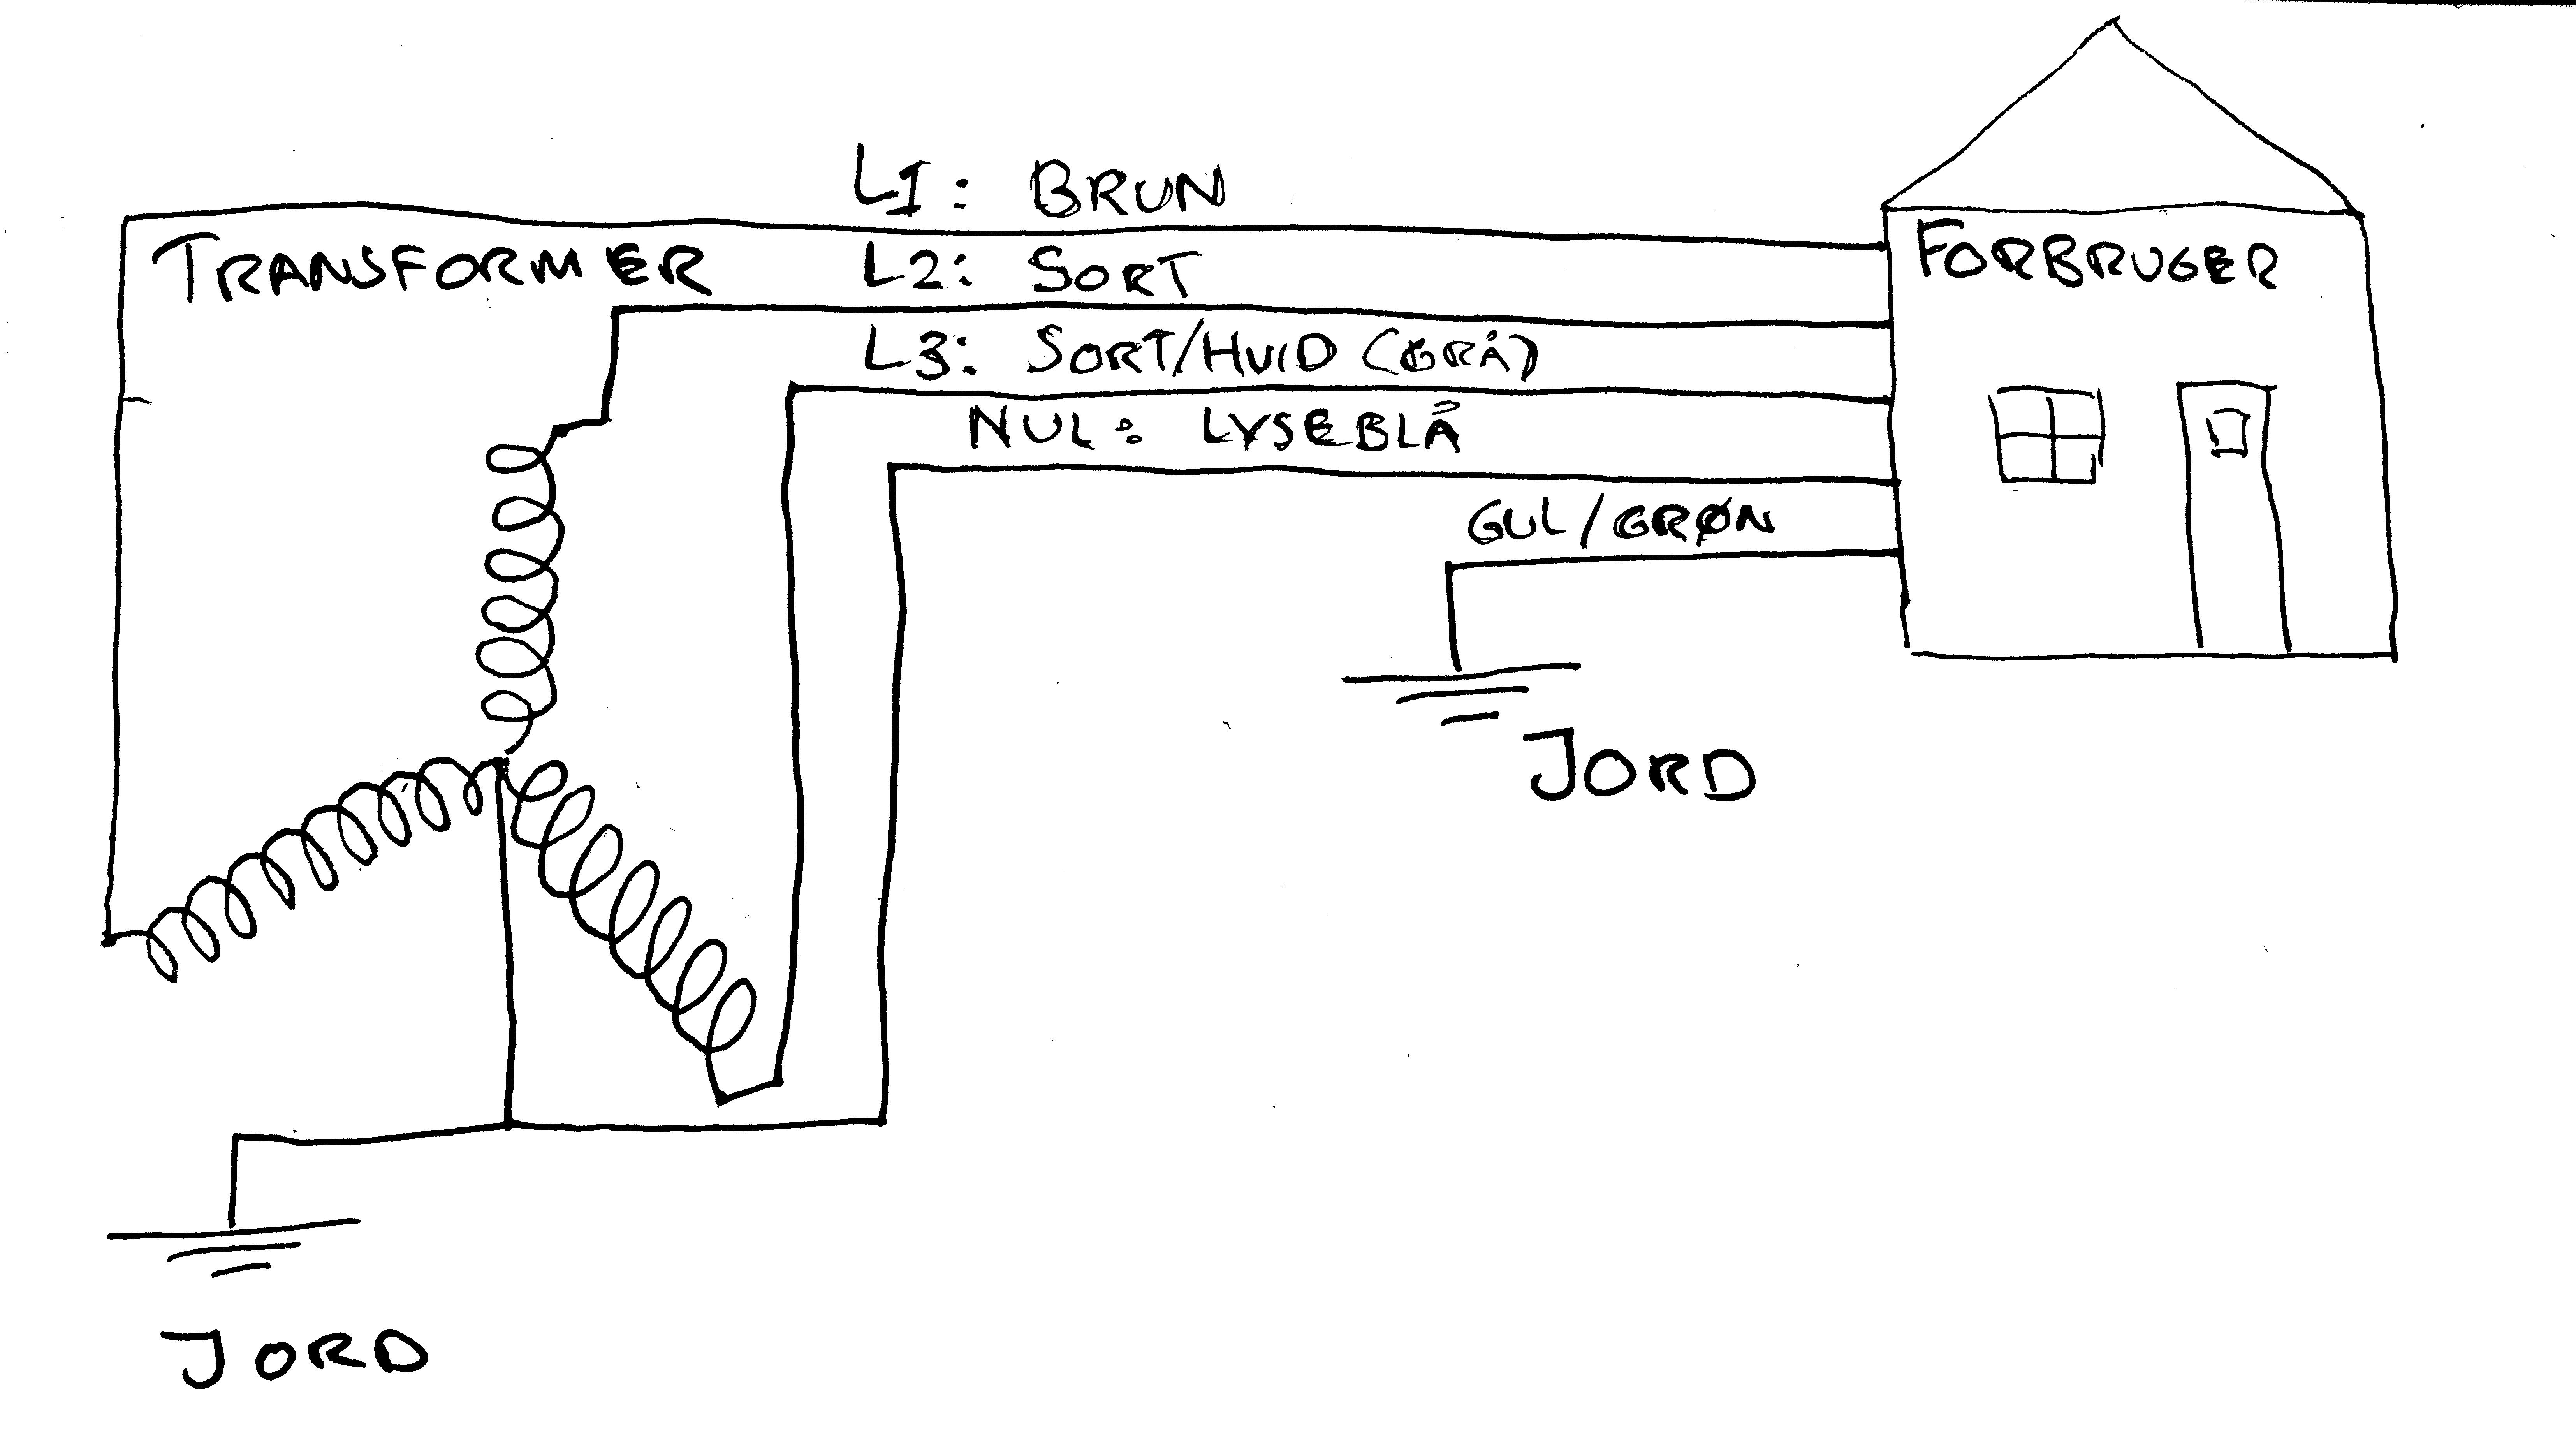 L1: BRUN
TRANSFORMER
L2: SORT
FORBRUGER
L3: SORT/HVID (GRÅ)
NUL: LYSEBLÅ
GUL/GRØN
JORD
JORD